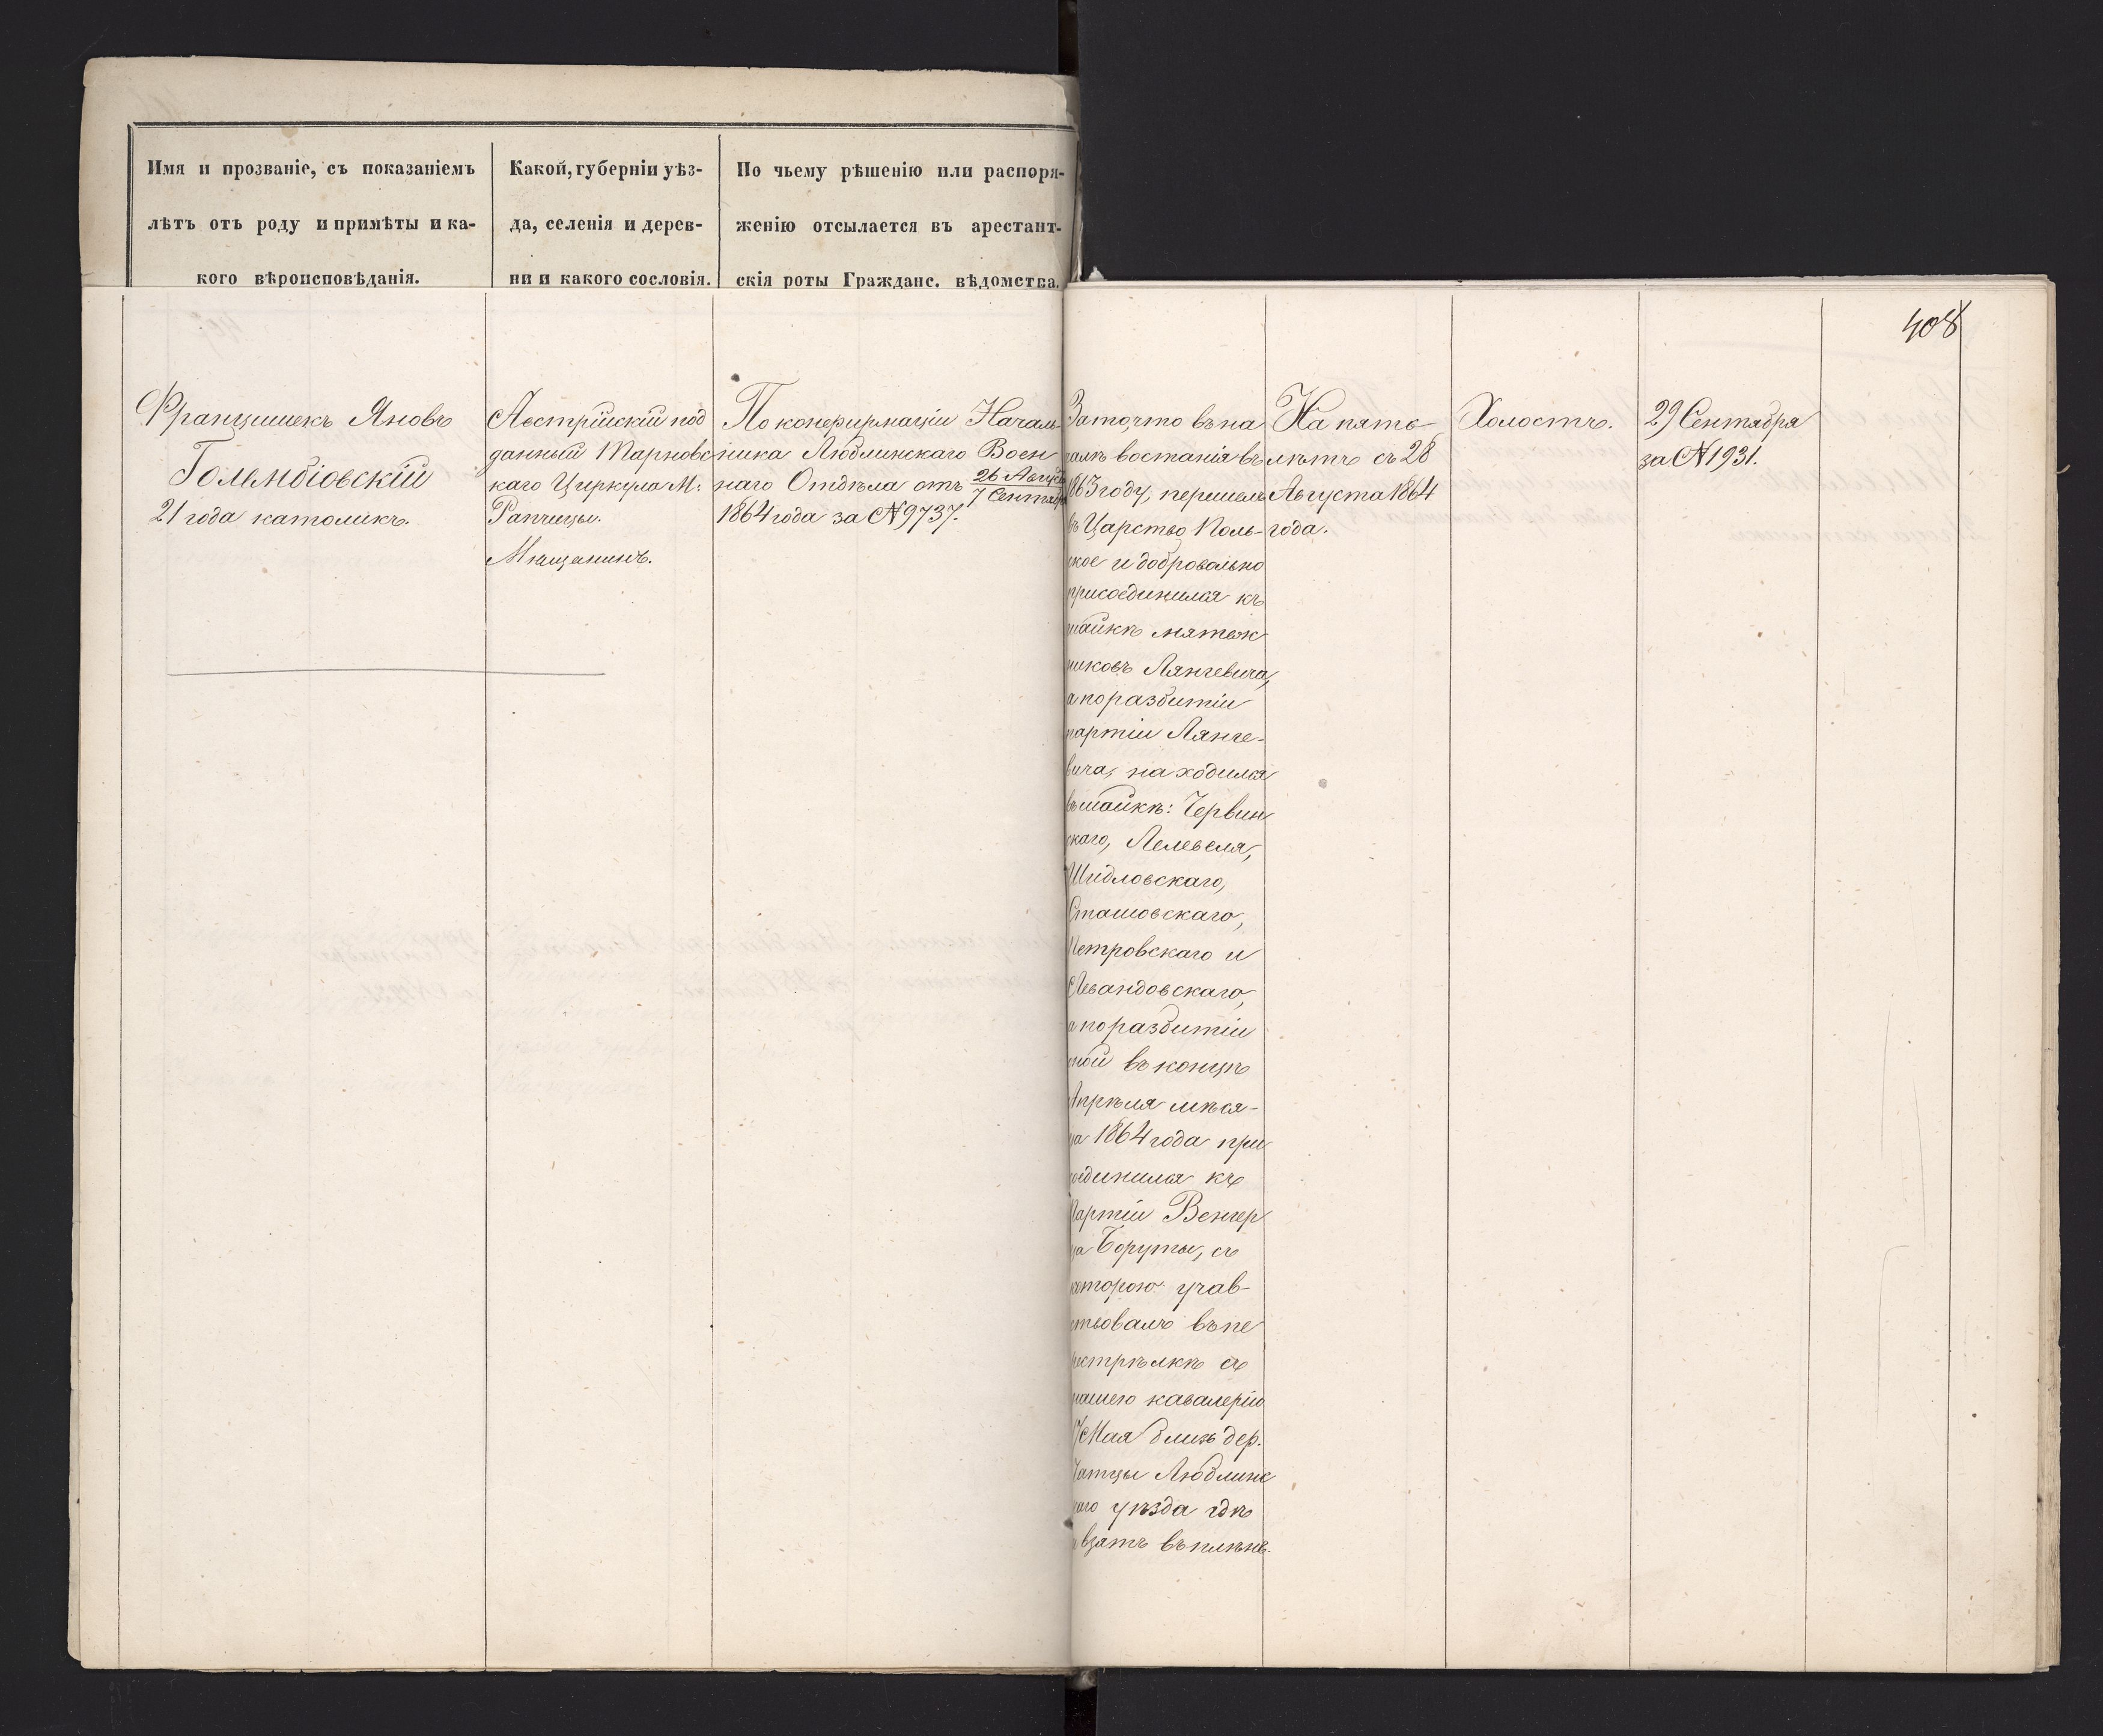 Имя и прозваніе, съ показаніемъ
лѣтъ отъ роду и примѣты и ка-
кого вѣроисповѣданія.
Какой, губерніи уѣз-
да, селенія и дерев-
ни и какого сословія.
По чьему рѣшенію или распоря-
женію отсылается въ арестант-
скія роты Гражданс. вѣдомства.
408
Францишекъ Яновъ
Голембіовскій
21 года католикъ.
Австрійскій под
данный Тарновс
каго Циркула М.
Рапчицы.
Мѣщанинъ.
По конфирмаціи Началь-
ника Люблинскаго Воен
наго Отдѣла отъ 26 Августа
7 Сентября
1864 года за № 9737.
За то, что въ на
чалѣ востанія въ
1863 году, перешелъ
въ Царство Поль-
ское и добровольно
присоединился къ
шайкѣ мятеж
никовъ Лянгевича,
а по разбитіи
партіи Лянге-
вича, находился
въ шайкѣ: Червин
скаго, Лелевеля,
Шидловскаго,
Сташовскаго,
Петровскаго и
Левандовскаго,
а по разбитіи
оной въ концѣ
Апрѣля мѣся-
ца 1864 года при
соединился къ
Партіи Венгер
ца Боруты, съ
которою учав-
ствовалъ въ пе
рестрѣлкѣ съ
нашею кавалеріею
7 Мая близь дер.
Люблинс
каго уѣзда гдѣ
и взятъ въ плѣнъ.
На пять
лѣтъ съ 28
Августа 1864
года.
Холостъ.
29 Сентября
за № 1931.